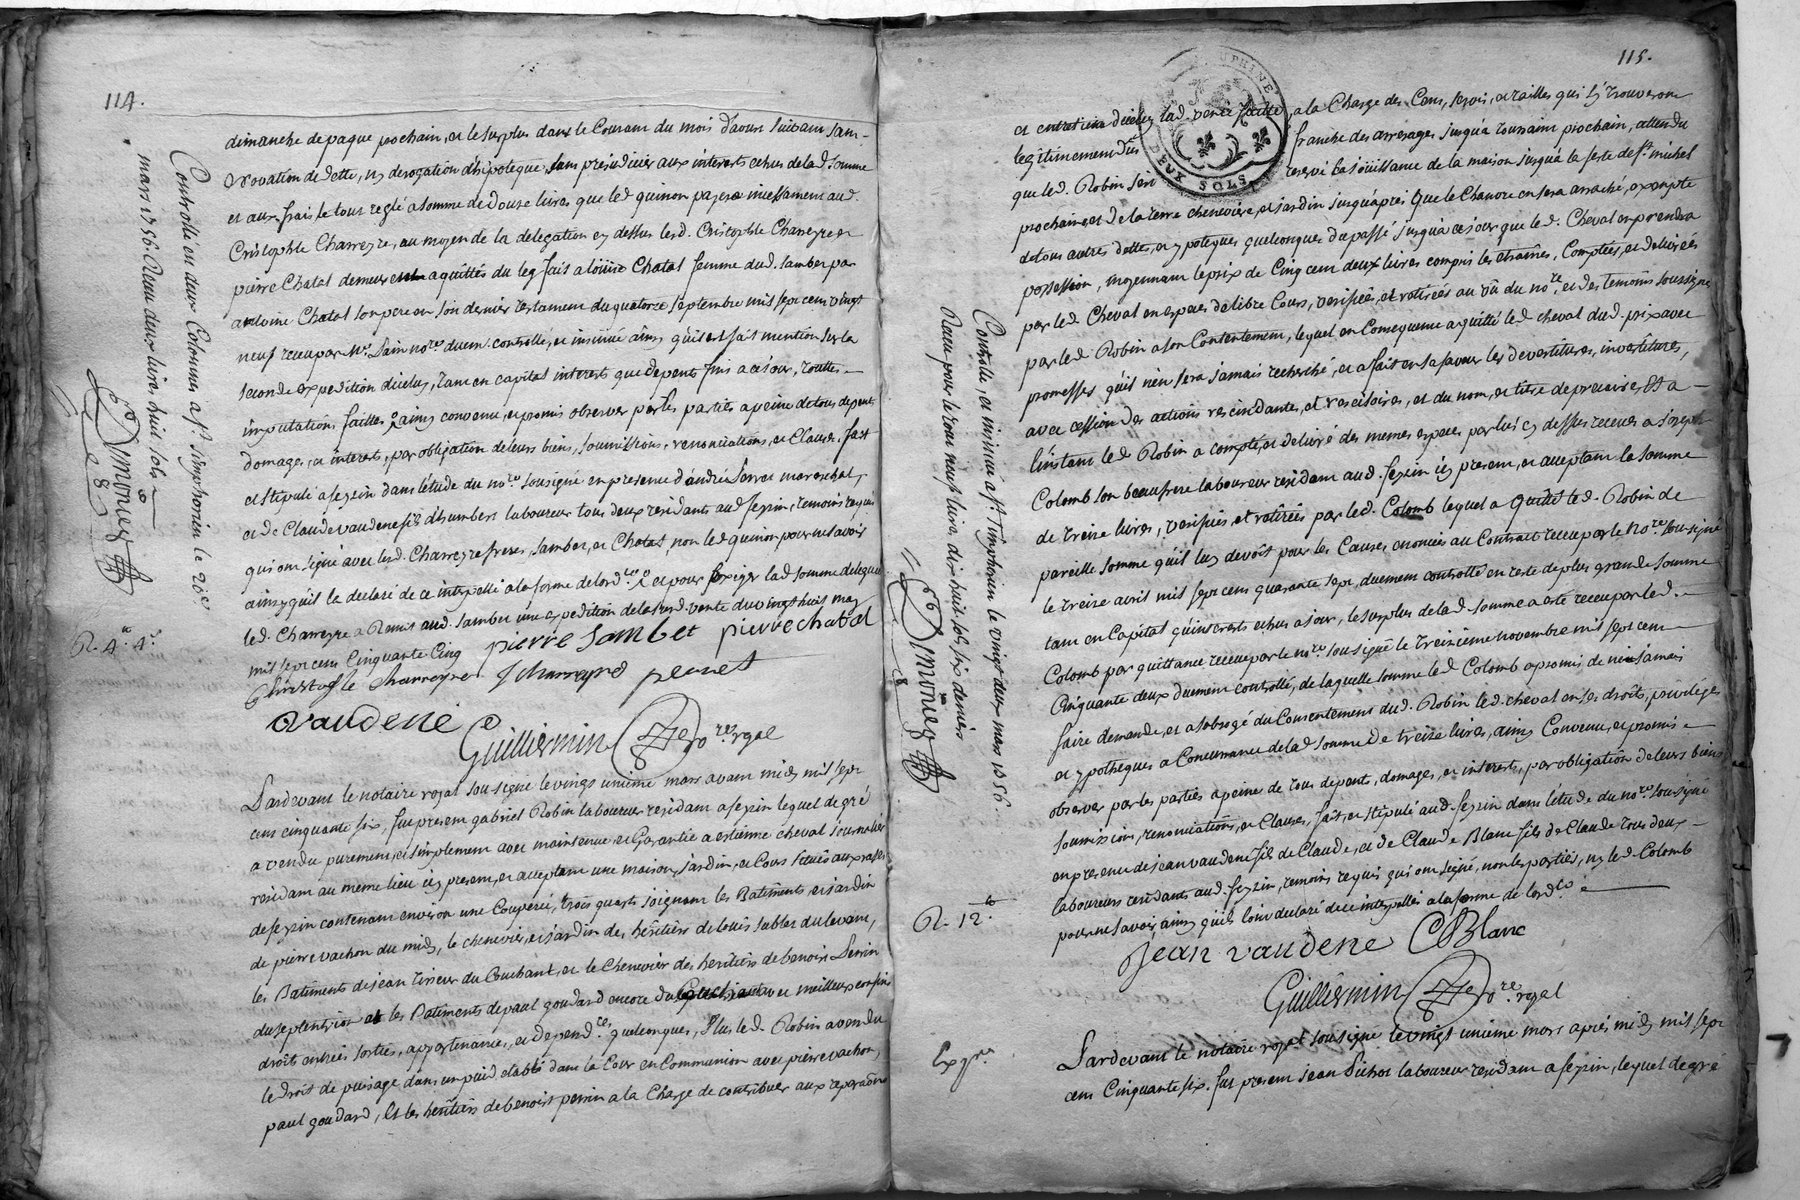 114.
dimanche de paque prochain, et le surplus dans le Courant du mois d'aoust suivant sans
novation de dette, ny derogation d'hipoteque, sans prejudicier aux interets echus de lad. somme
et aux frais le tout reglé a somme de Douze livres que led quinon payera incessament aud.
Cristophle Charreyre, au moyen de la delegation cy dessus lesd. Cristophle Charreyre et
pierre Chatal demeurent aquittés du leg fait a loüise Chatal femme dud. Jambet par
antoine Chatal son pere en son dernier testament du quatorze septembre mil sept cens vingt
neuf receu par Me. no.re duem.t controllé, et insinué ainsy qu'il est fait mention sur la
seconde expedition d'icelui, tant en capital interets que depents
imputations faittes, ainsy convenu, et promis observer par les parties a peine de tous depents
domages, et interets, par obligation de leurs biens, soumissions, renonciations, et Clauses. fait
et stipulé a feyzin dans l'étude du no.re sousigné en presence d'andré mareschal,
et de Claude vaudene fils d'humbert laboureur tous deux residants aud feyzin, temoins requis
qui ont signé avec lesd. Charreyre freres, Jambet, et Chatal, non led quinon pour ne savoir
ainsy qu'il le declaré de ce interpellé a la forme de l'ord.ce et pour exiger lad somme deleguée
led. Charreyre a Remis aud. Jambet une expedition de lad vente du vingt huit may
mil sept cens Cinquante Cinq
pierre Jambet pierre chatal
Christofle Charreyre J Charreyre
vaudene
Guillermin no.re royal
Controllé en deux Colonnes a st. simphorien le 20e
mars 1756. Receu deux livres huit sols
R. 4.tt 4.s
Pardevant le notaire royal sousigné le vingt unieme mars avant midy mil sept
cens cinquante six, fut present gabriel Robin laboureur residant a feyzin lequel de gré
a vendu purement, et simplement avec maintenue et Garantie a estienne cheval journalier
residant au meme lieu icy present, et acceptant une maison, jardin, et Cour situés aux
de feyzin contenant environ une Couperée, trois quarts joignant les Batiments et jardin
de pierre vachon du midy, le chenevier, et jardin des héritiers de loüis sablet du levant,
les Batiments de jean Couchant, et le Chenevier des heritiers de benoist Perrin
du septentrion et les Batiments de paul goudard encore du Couchant avec meilleurs confins
droits entrées sorties, appartenances, et depend.ces quelconques, Plus led. Robin a vendu
le droit de puisage dans un puid etabli dans la Cour en Communion avec pierre vachon,
paul goudard, Et les heritiers de benoist perrin a la Charge de contribuer aux reparations
115.
et entretien d'icelui lad. vente faitte, a la Charge des Cens, servis, et tailles qui s'y trouveront
legitimement dus franche des arrerages jusqu'a toussaint prochain, attendu
que led. Robin s'est reservé la joüissance de la maison jusqu'a la feste de st. michel
DEUX SOLS
prochaine, et de la terre cheneviere, et jardin jusqu'apres que le Chanvre en sera arraché, exempte
de tous autres dette, et ypoteques quelconques du passé jusqu'a ce jour que led. Cheval en prendra
possession, moyennant le prix de Cinq cent deux livres compris les etraines, Comptées, et delivrées
par led Cheval en especes de libre Cours, verifiées, et retirées au vû du no.re, et des temoins soussignés
par led Robin a son Contentement, lequel en Consequence a quitté led cheval dud. prix avec
promesses qu'il n'en sera jamais recherché, et a fait en sa faveur les devestitures, investitures,
avec cession des actions rescindantes, et rescisoires, et du nom, et titre de precaire, Et a
l'instant led Robin a compté, et delivré des memes especes par lui cy dessus receues a
Colomb son beaufrere laboureur residant aud. feyzin icy present, et acceptant la somme
de treize livres, verifiées, et retirées par led. Colomb lequel a quitté led. Robin de
pareille somme qu'il luy devoit pour les Causes enoncées au Contract receu par le No.re sousigné
le treize avril mil sept cens quarante sept, duement controllé en reste de plus grande somme
tant en Capital qu'interets echus a jour, le surplus de lad. somme a eté receu par led.
Colomb par quittance receue par le no.re sousigné le treizieme novembre mil sept cent
Cinquante deux duement controllé, de laquelle somme led Colomb a promis de n'en jamais
faire demande, et a subrogé du Consentement dud. Robin led. cheval en ses droits, privileges
et ypotheques a Concurrance de lad somme de treize livres, ainsy Convenu, et promis
observer par les parties a peine de tous depents, domages, et interets, par obligation de leurs biens
soumissions, renonciations, et Clauses, fait, et stipulé aud. feyzin dans l'etude du no.re sousigné
en presence de jean vaudene fils de Claude, et de Claude Blanc fils de Claude tous deux
laboureurs residants aud. feyzin, temoins requis qui ont signé, non les parties, ny led. Colomb
pour ne savoir, ainsy qu'ils l'ont declaré de ce interpellés a la forme de l'ord.ce
Jean vaudene CBlanc
Guillermin no.re royal
Controllé, et insinué a st. simphorien le vingt deux mars 1756.
Receu pour le tout neuf livres dix huit sols six deniers
R. 12.tt
Exp.re
Pardevant le notaire royal sousigné le vingt unieme mars aprés midy mil sept
cens Cinquante six. fut present jean Pichot laboureur residant a feyzin, lequel de gré